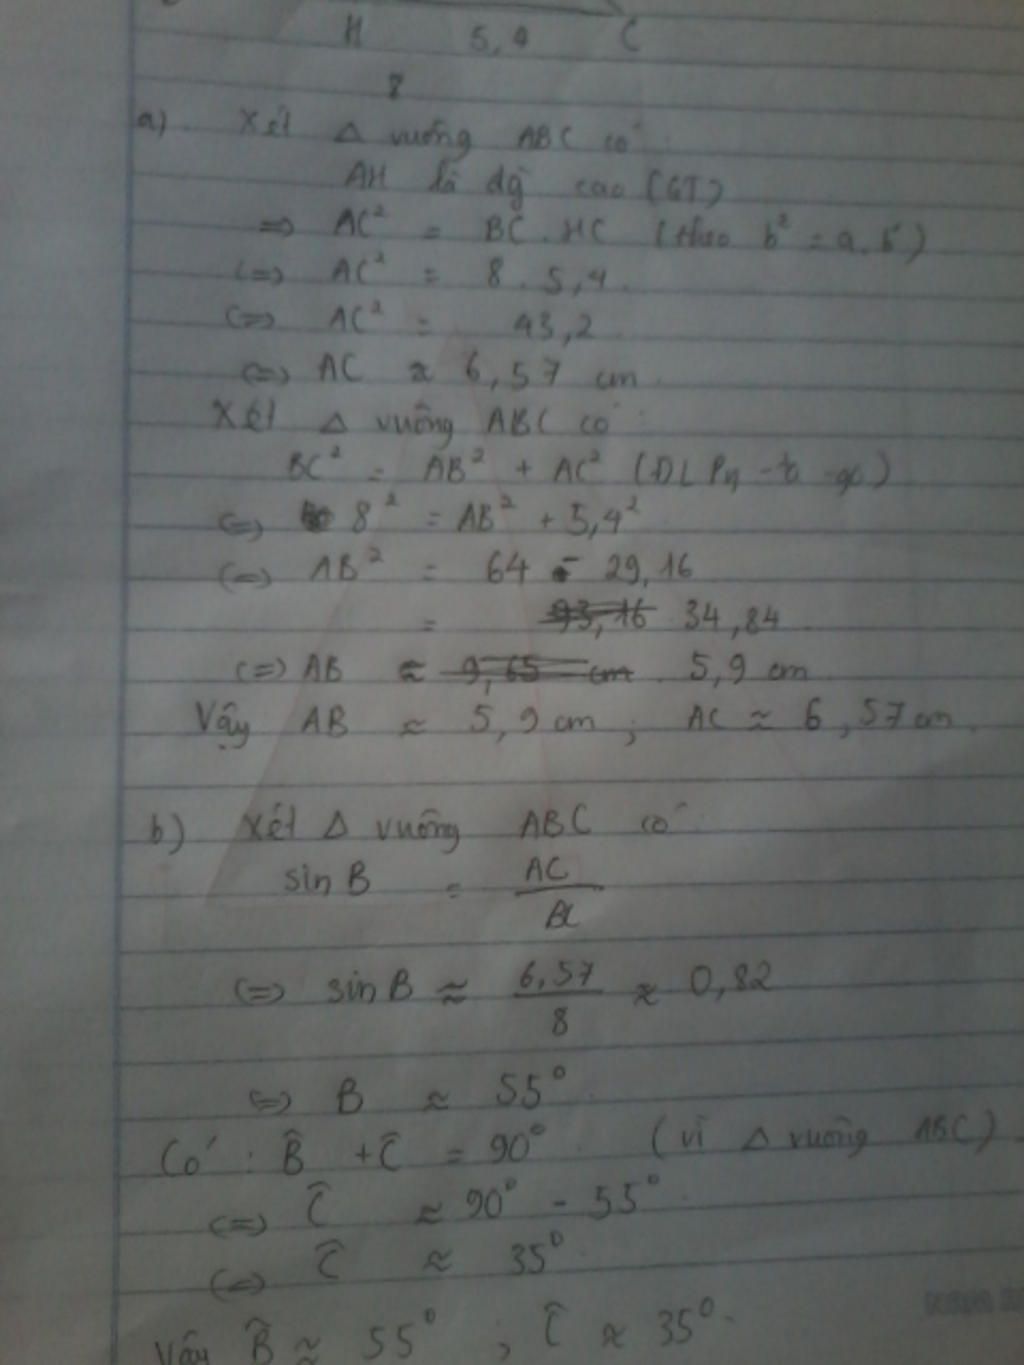 H 5,4 C
8
a). Xét Δ vuông ABC có
AH là đg cao (GT)
=> AC² = BC . HC (theo b² = a.b')
(=) AC² = 8 . 5,4
(=> AC² = 43,2
(=) AC ≈ 6,57 cm
Xét Δ vuông ABC có :
BC² = AB² + AC² (ĐL Py-ta-go)
(=) 8² = AB² + 5,4²
(=) AB² = 64 - 29,16
= 93,16 34,84
(=) AB ≈ 9,65 cm . 5,9 cm
Vậy AB ≈ 5,9 cm ; AC ≈ 6,57 cm
b) Xét Δ vuông ABC có
sin B = AC
BC
(=) sin B ≈ 6,57 ≈ 0,82
8
(=) B ≈ 55°
Có : B̂ + Ĉ = 90° (vì Δ vuông ABC)
(=) Ĉ ≈ 90° - 55°
(=) Ĉ ≈ 35°
Vậy B̂ ≈ 55° ; Ĉ ≈ 35°.